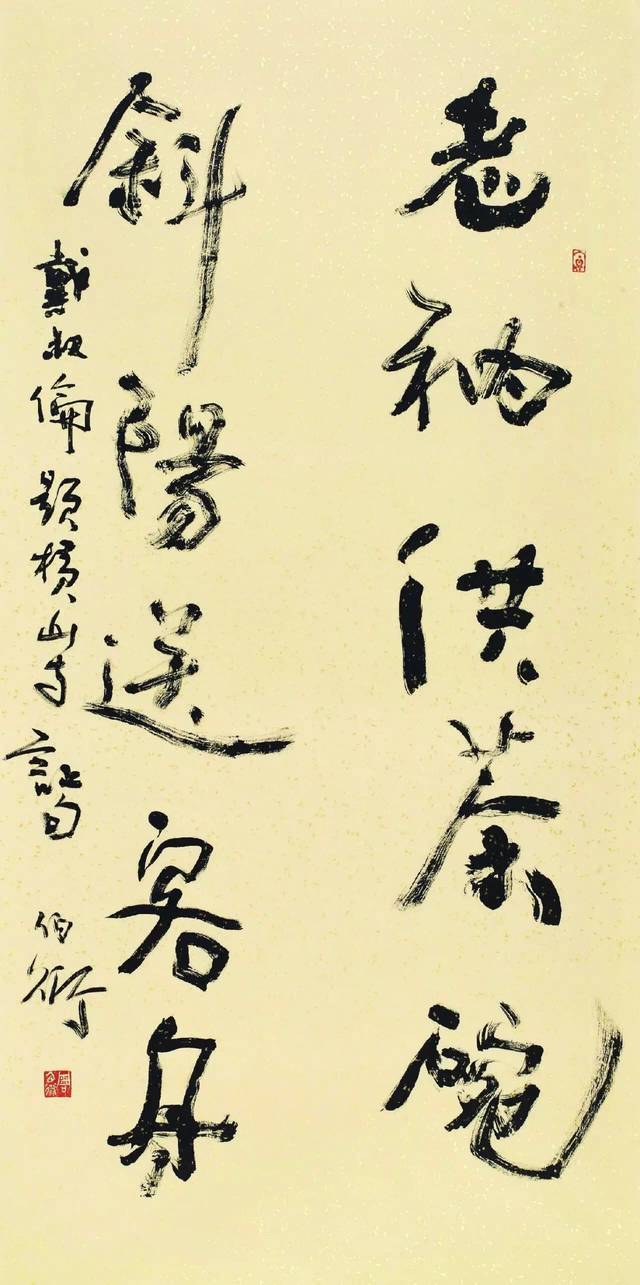 老衲供茶碗
斜陽送客舟
戴叔倫題橫山寺 伯